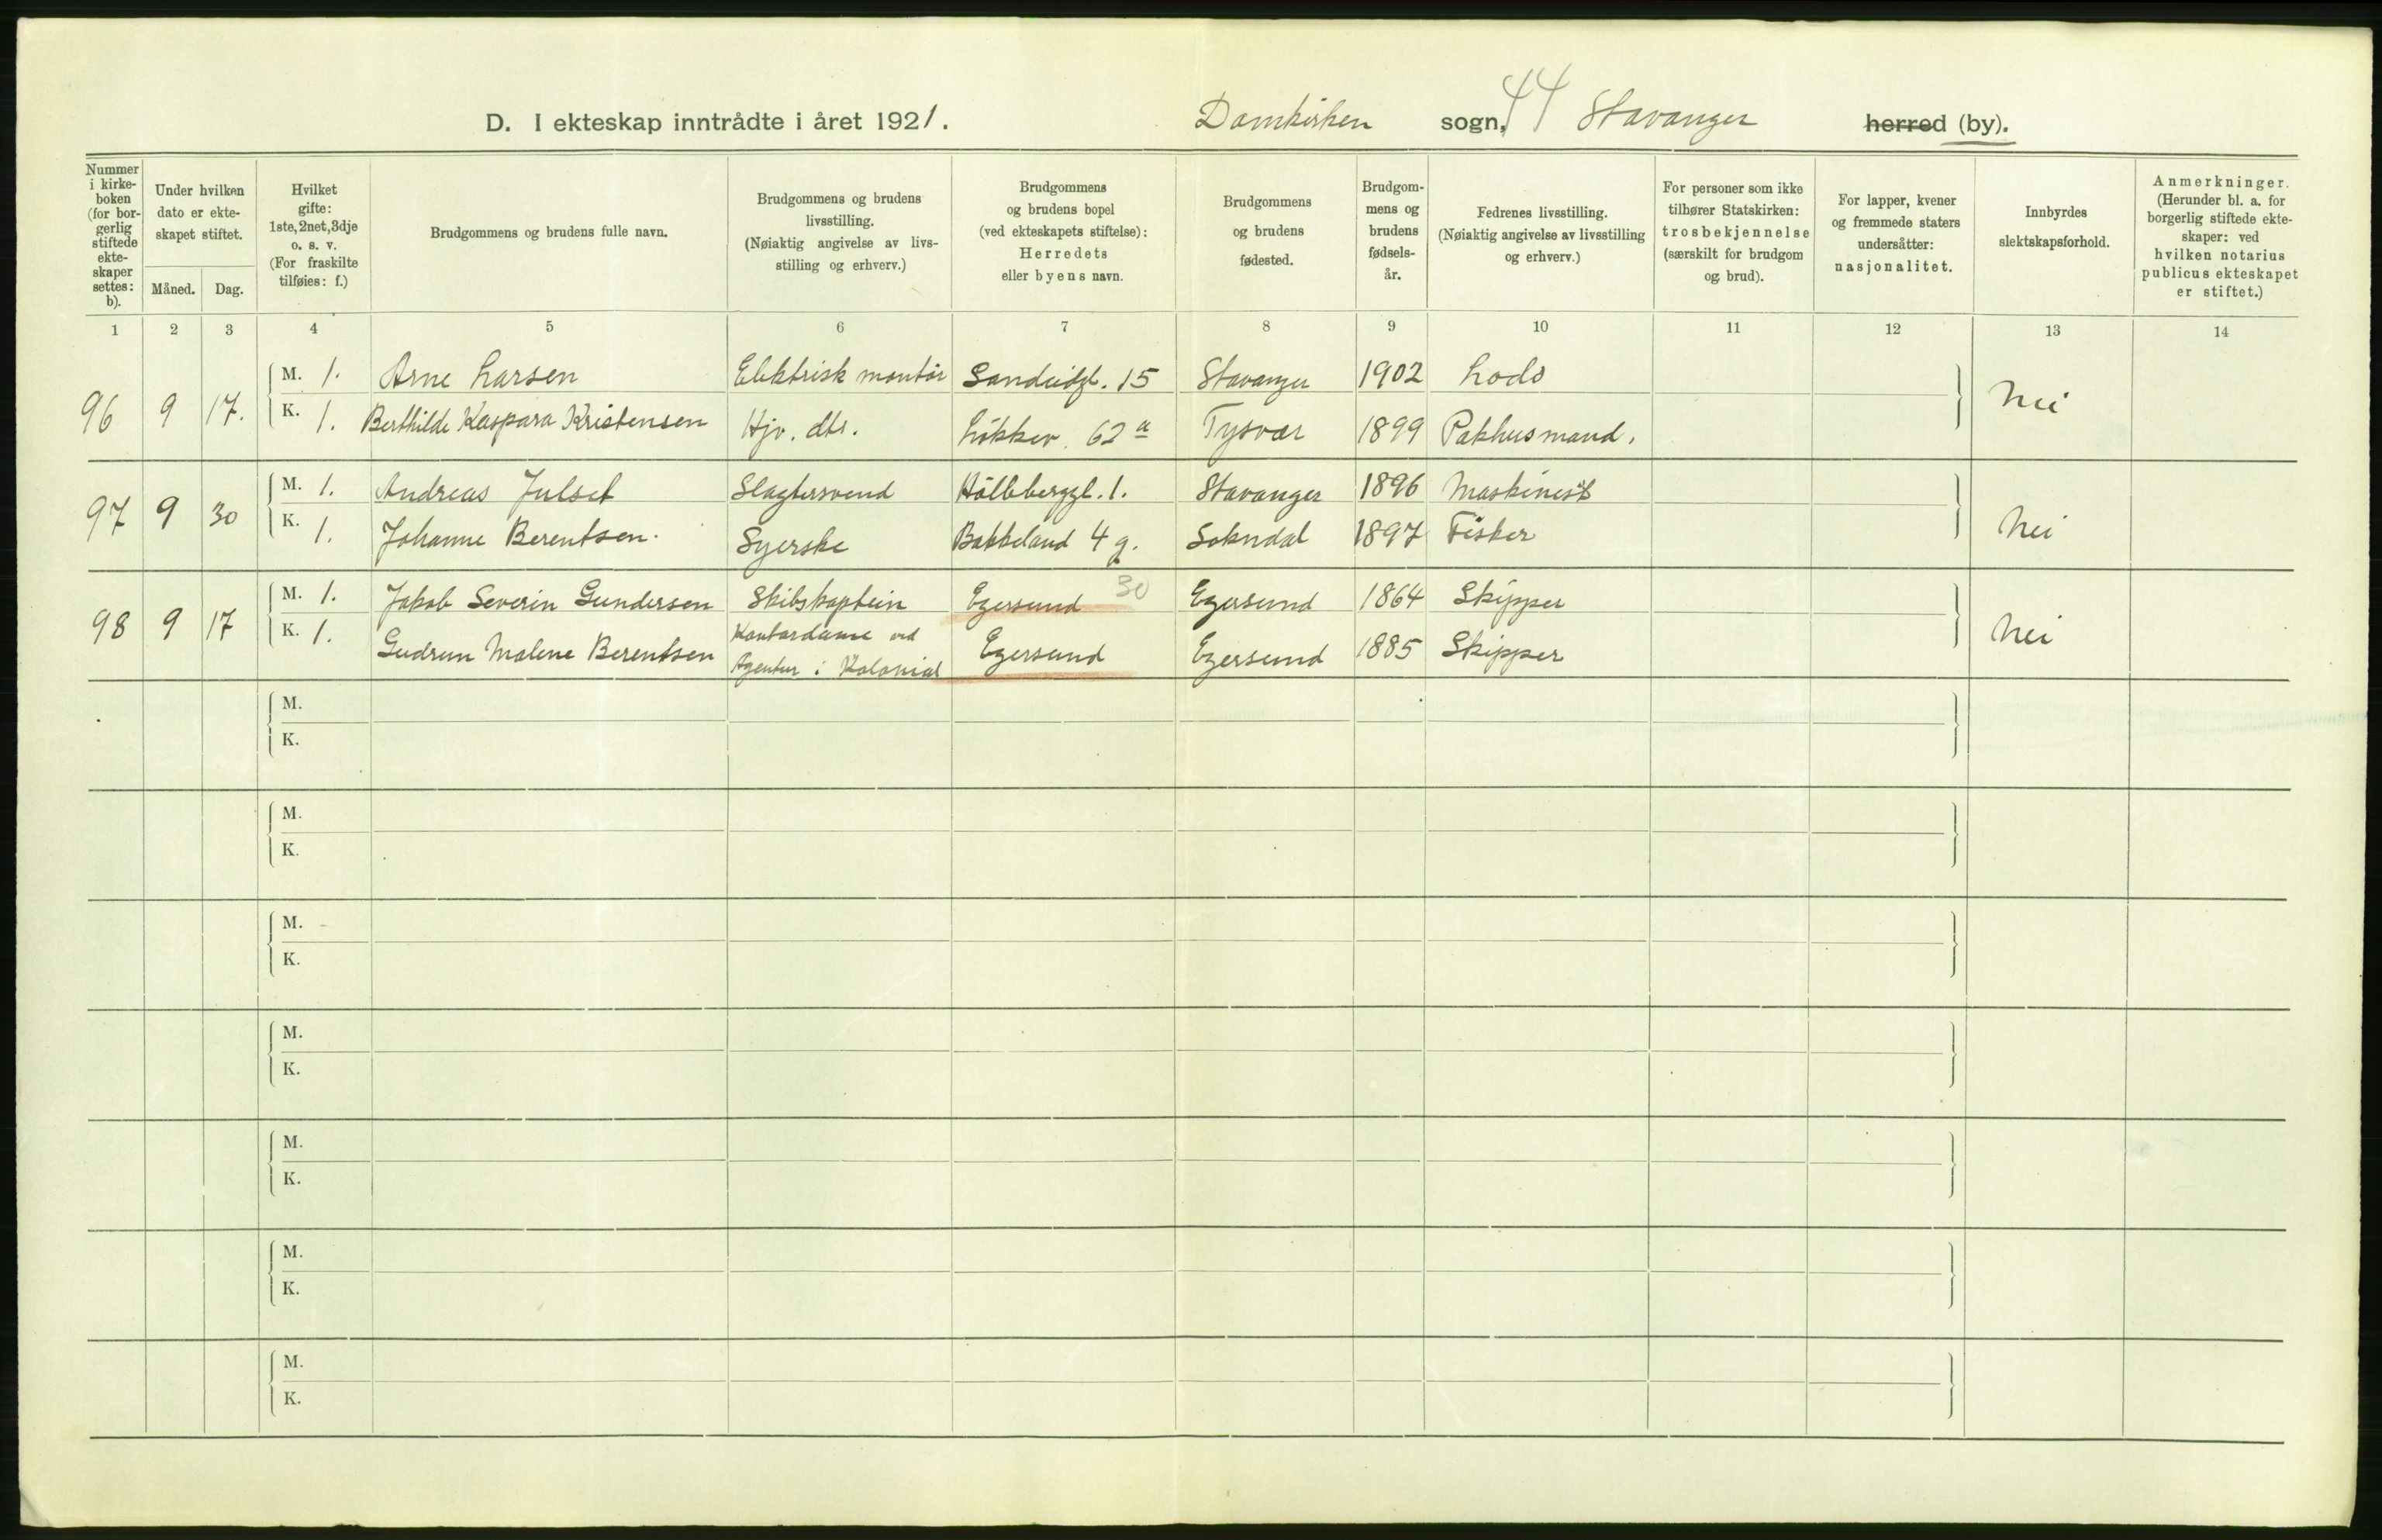 D. I ekteskap inntrådte i året 1921. Domkirken sogn, 44 Stavanger herred (by).
Nummer i kirke-boken (for bor-gerlig stiftede ekte-skaper settes: b).
Under hvilken dato er ekte-skapet stiftet.
Måned. Dag.
Hvilket gifte: 1ste, 2net, 3dje o. s. v. (For fraskilte tilføies: f.)
Brudgommens og brudens fulle navn.
Brudgommens og brudens livsstilling. (Nøiaktig angivelse av livs-stilling og erhverv.)
Brudgommens og brudens bopel (ved ekteskapets stiftelse): Herredets eller byens navn.
Brudgommens og brudens fødested.
Brudgom-mens og brudens fødsels-år.
Fedrenes livsstilling. (Nøiaktig angivelse av livsstilling og erhverv.)
For personer som ikke tilhører Statskirken: trosbekjennelse (særskilt for brudgom og brud).
For lapper, kvener og fremmede staters undersåtter: nasjonalitet.
Innbyrdes slektskapsforhold.
Anmerkninger. (Herunder bl. a. for borgerlig stiftede ekte-skaper: ved hvilken notarius publicus ekteskapet er stiftet.)
1 2 3 4 5 6 7 8 9 10 11 12 13 14
M. 1. Arne Larsen Elektrisk montör Sandeidgt. 15 Stavanger 1902 Lods
96 9 17. Nei
K. 1. Berthilde Kaspara Kristensen Hjv. dtr. Lökkev. 62 a Tysvær 1899 Pakhusmand.
M. 1. Andreas Julset Slagtersvend Hölebergsgt. 1. Stavanger 1896 Maskinist
97 9 30 Nei
K. 1. Johanne Berentsen. Syerske Bakkeland 4 g. Sokndal 1897 Fisker
M. 1. Jakob Severin Gundersen Skibskaptein Egersund 30 Egersund 1864 Skipper
98 9 17 Nei
K. 1. Gudrun Malene Berentsen Kontordame ved Agentur i Kolonial Egersund Egersund 1885 Skipper
M.
K.
M.
K.
M.
K.
M.
K.
M.
K.
M.
K.
M.
K.